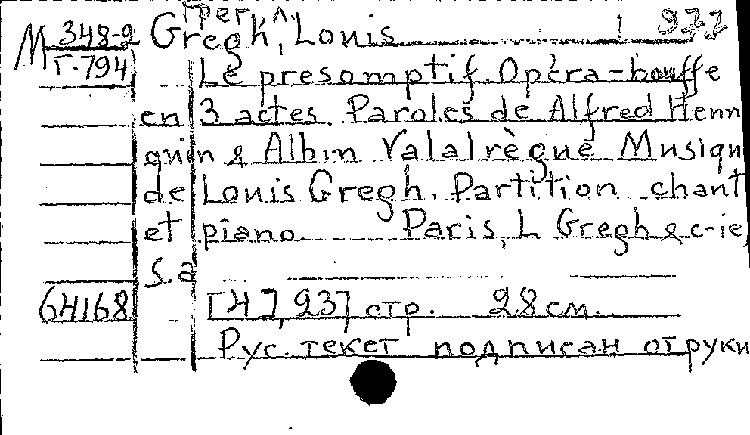 М 348-2 Gregh, Louis
Г-794 Le présomptif. Opéra-bouffe
en 3 actes. Paroles de Alfred Henn
quin & Albin Valalrègue Musiqu
de Louis Gregh. Partition chant
et piano. Paris, L Gregh & c-ie,
s.a
64168 [4], 237 стр. 28 см.
Рус. текст подписан от руки